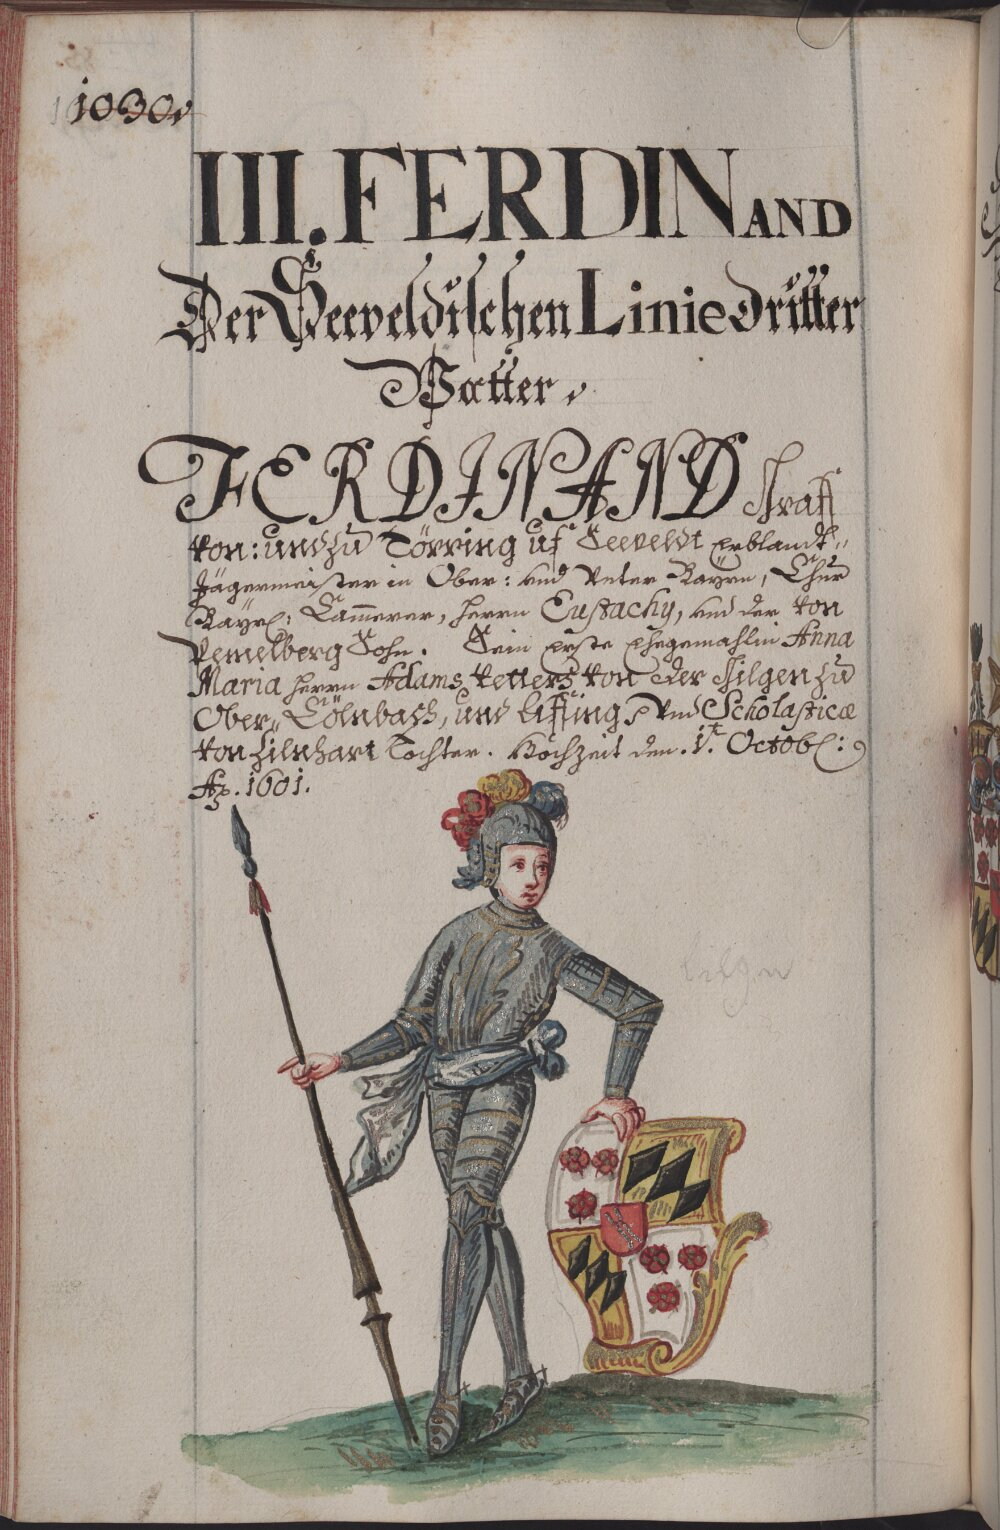 1030.
III. FERDINAND
Der Seeveldischen Linie dritter
Vatter.
FERDINAND Graff
von: und zu Törring uf Seeveldt Erblandt-
Jägermeister in Ober: und Unter Bayrn, Chur
Bayrl: Cammerer, herrn Eustachy, und der von
Pemelberg Sohn. Sein erste Ehegemahlin Anna
Maria herrn Adams Vetters von der Gilgen zu
Ober, Cölnbach, und und Scholasticæ
von Tochter. Hochzeit den. 1.t Octobr:
Ao. 1601.